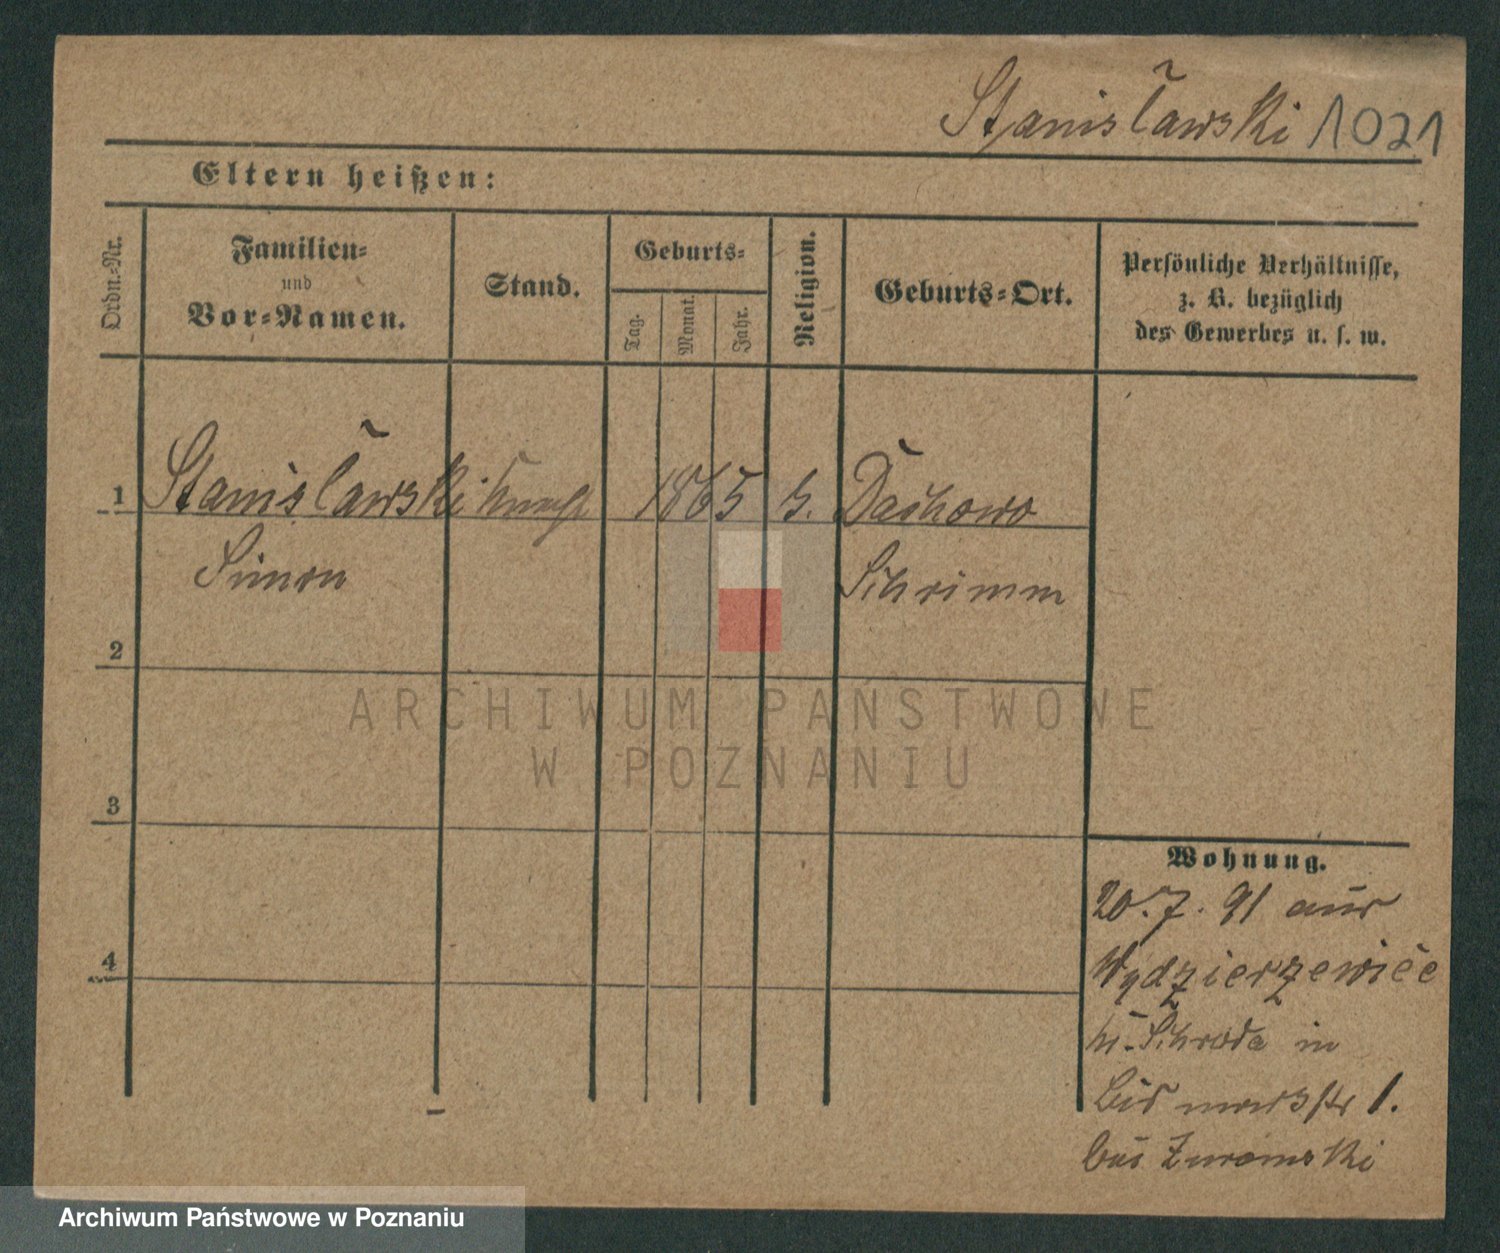 Stanisławski 1021
Eltern heißen:
Ordn.-Nr.
Familien-
und
Vor-Namen.
Stand.
Geburts-
Tag.
Monat.
Jahr.
Religion.
Geburts-Ort.
Persönliche Verhältnisse,
z. B. bezüglich
des Gewerbes u. s. w.
1 Stanisławski 1865 Dachowo
Simon Schrimm
2
3
4
Wohnung.
20. 7. 91 aus
Wydzierzewice
Schroda in
Bismarckstr 1.
bei Zuromski
ARCHIWUM PAŃSTWOWE
W POZNANIU
Archiwum Państwowe w Poznaniu